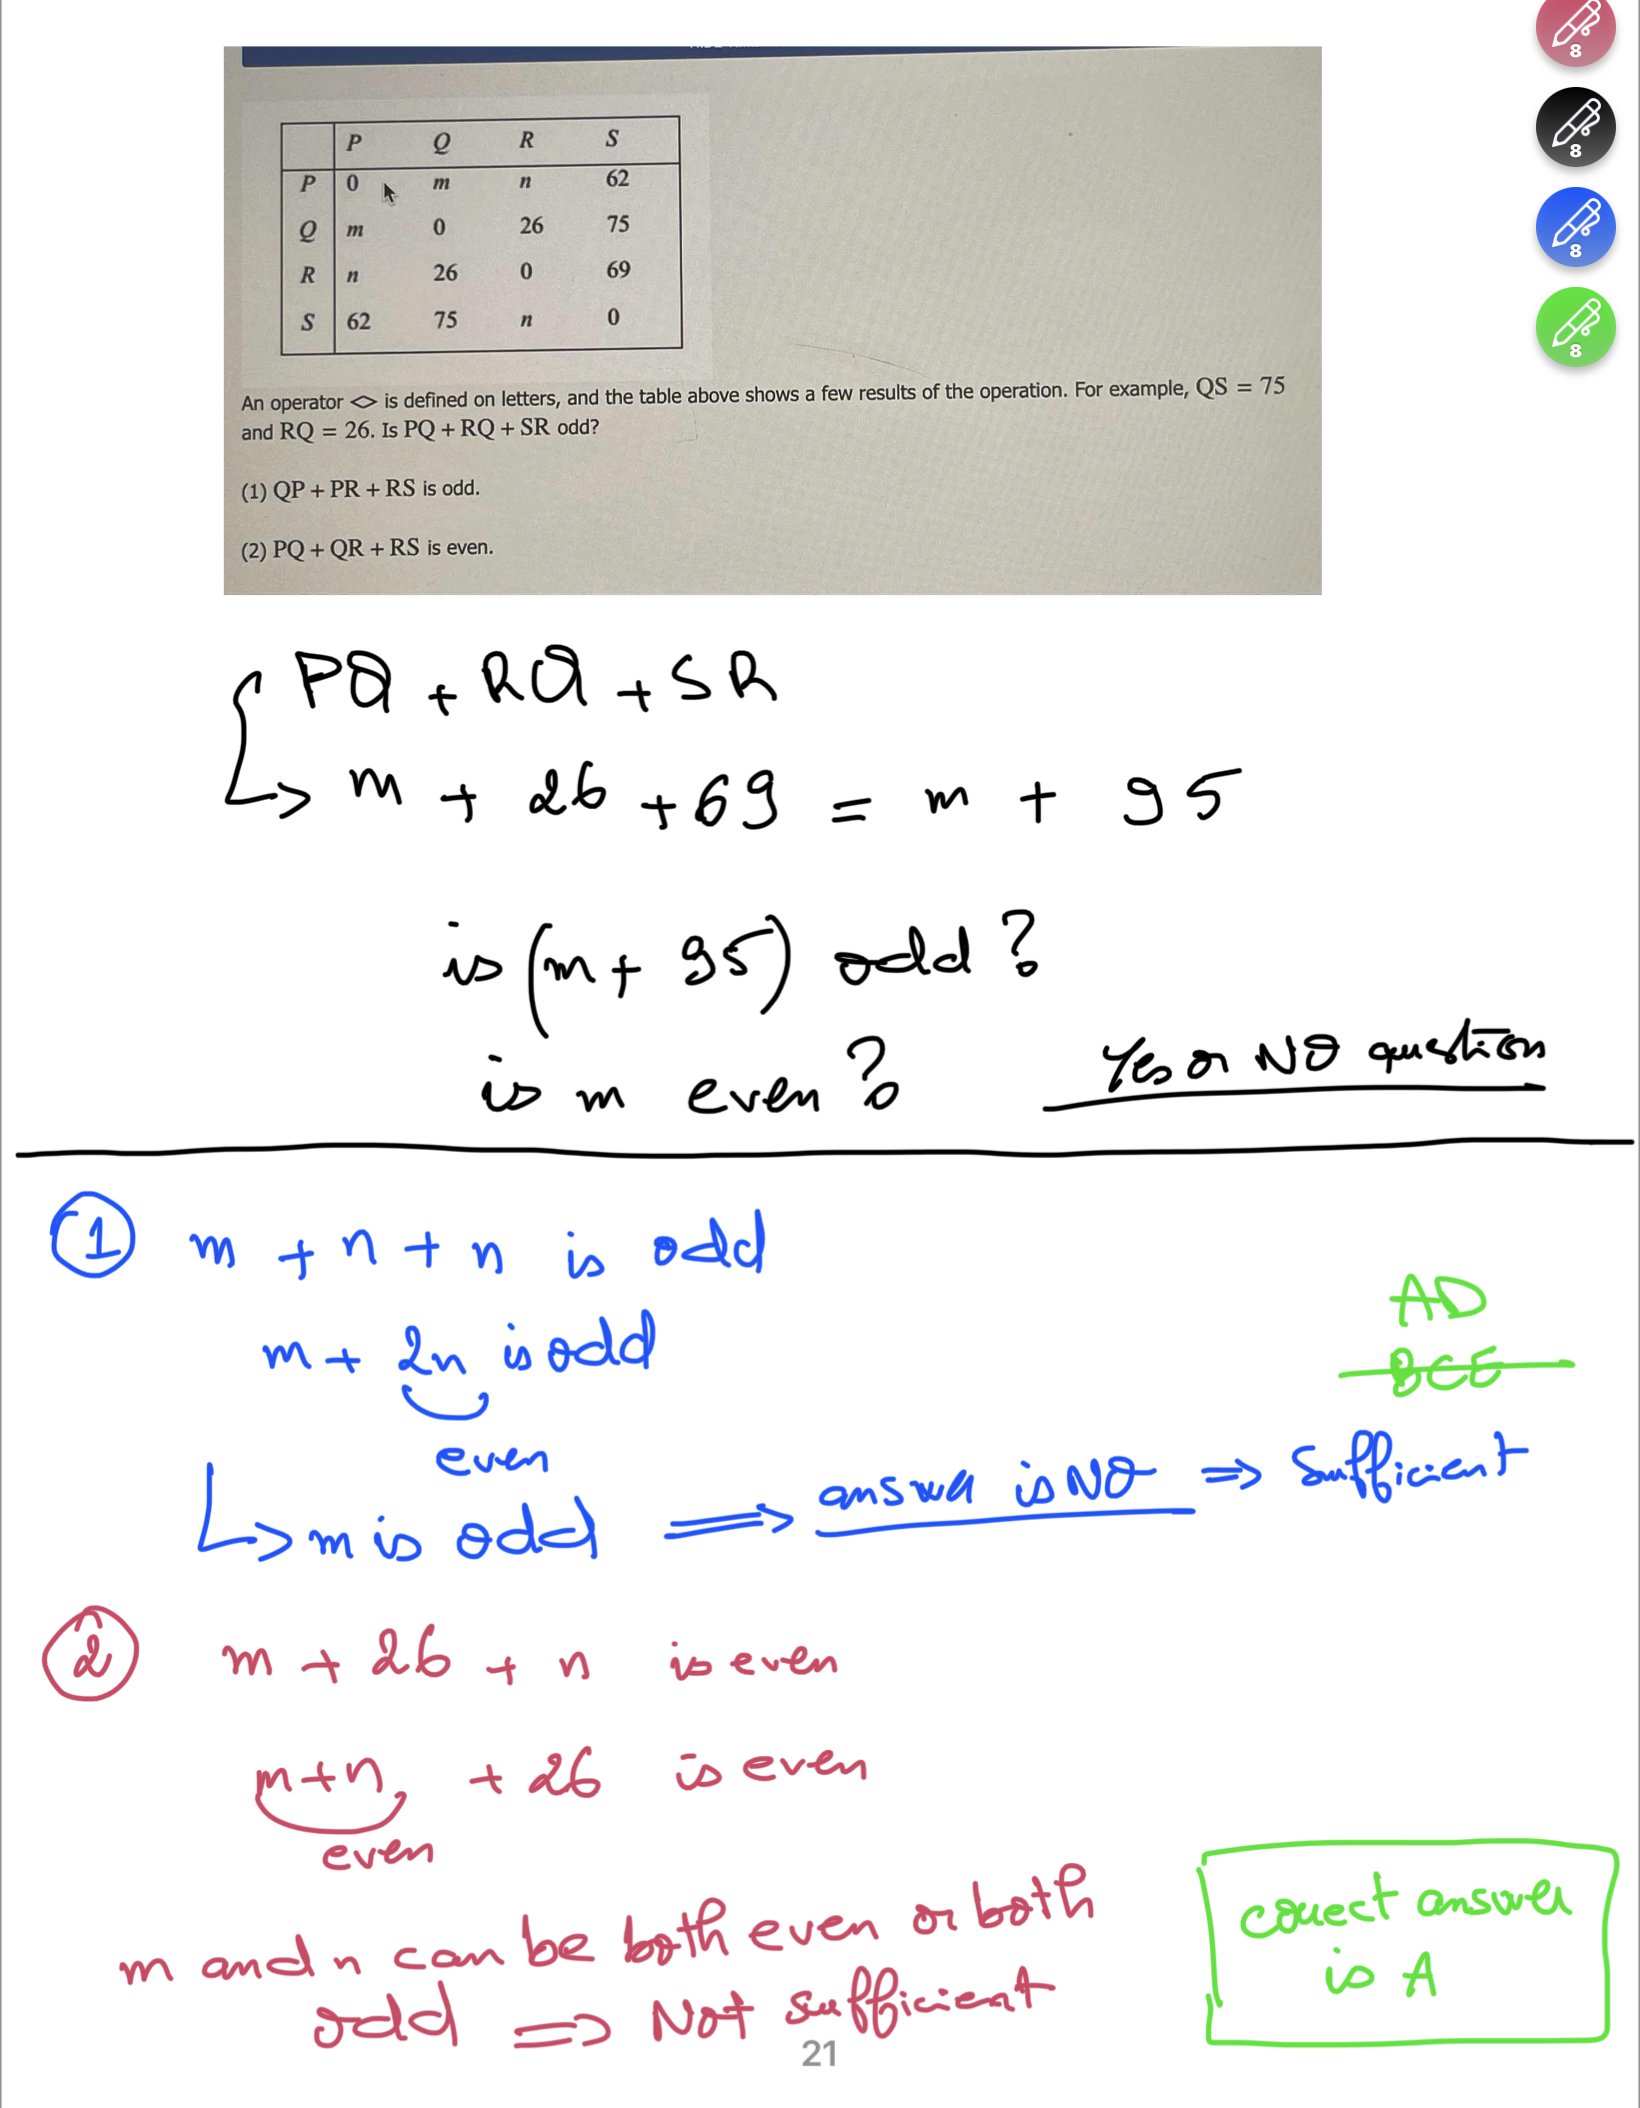 8
8
8
8
P Q R S
P 0 m n 62
Q m 0 26 75
R n 26 0 69
S 62 75 n 0
An operator <> is defined on letters, and the table above shows a few results of the operation. For example, QS = 75
and RQ = 26. Is PQ + RQ + SR odd?
(1) QP + PR + RS is odd.
(2) PQ + QR + RS is even.
PQ + RQ + SR
↳ m + 26 + 69 = m + 95
is (m + 95) odd ?
is m even ?
Yes or NO question
① m + n + n is odd
m + 2n is odd
even
↳ m is odd ⟹ answer is NO ⇒ Sufficient
AD
BCE
② m + 26 + n is even
m+n + 26 is even
even
m and n can be both even or both
odd ⇒ Not sufficient
correct answer
is A
21